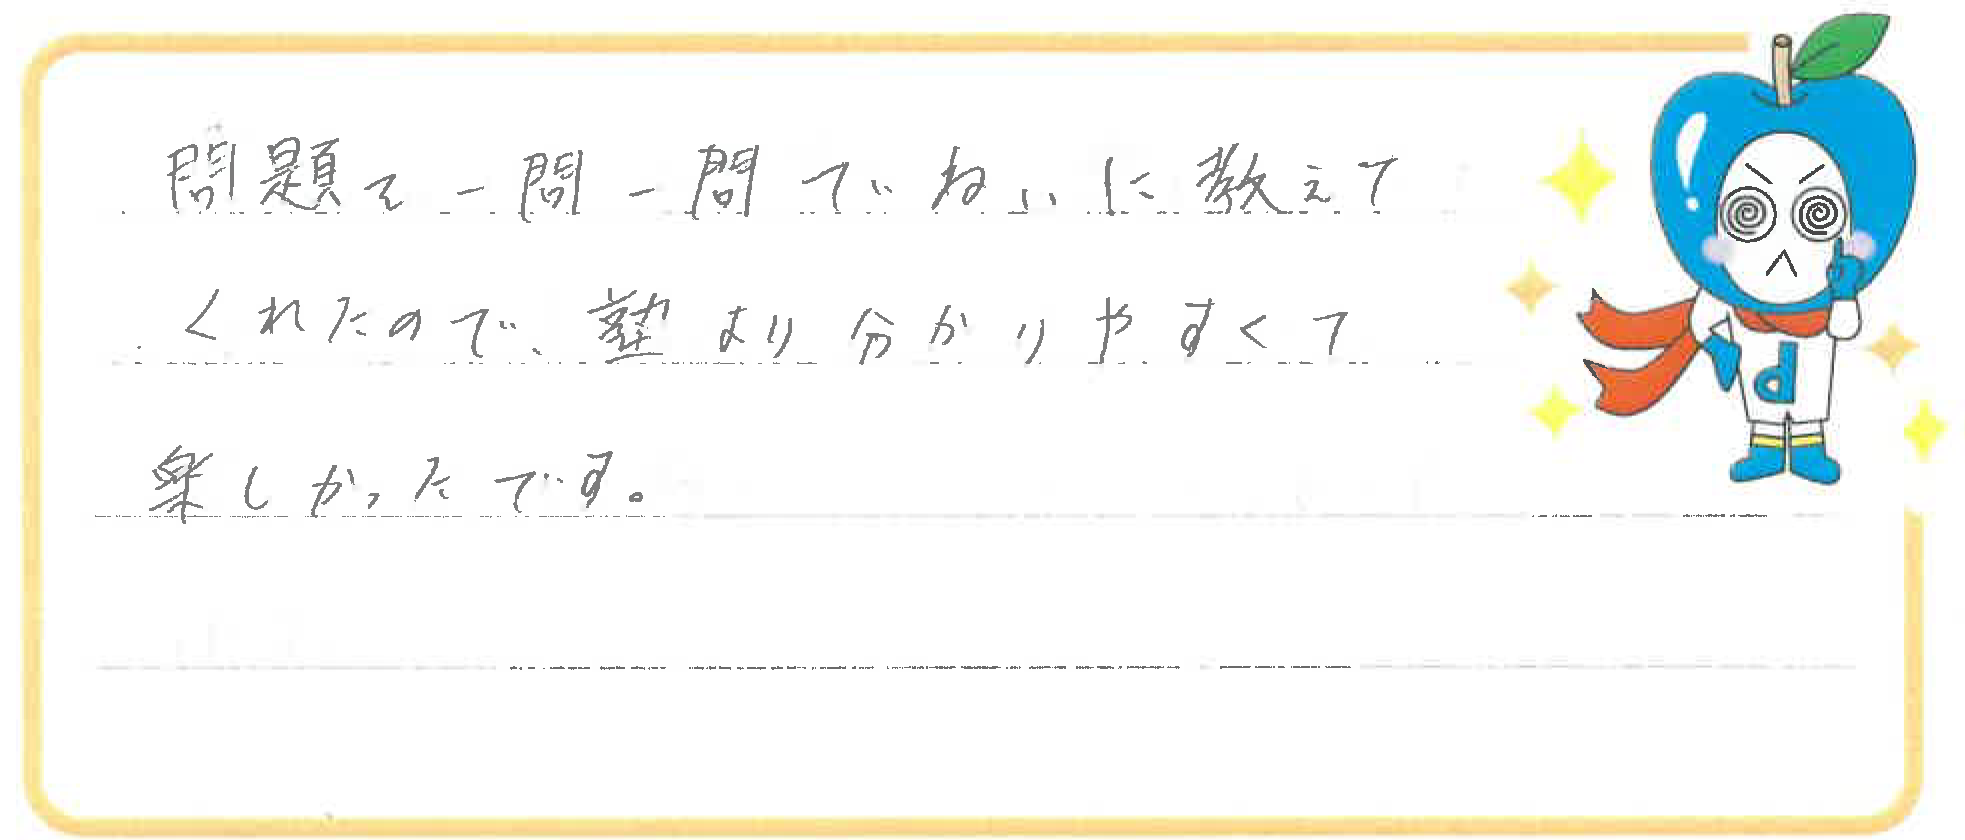 問題を一問一問ていねいに教えて
くれたので、塾より分かりやすくて
楽しかったです。
d